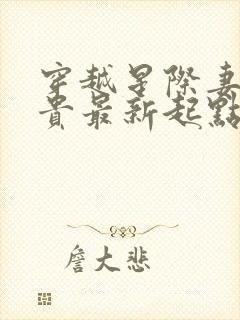 穿越星際妻
貴最新起點
詹大悲